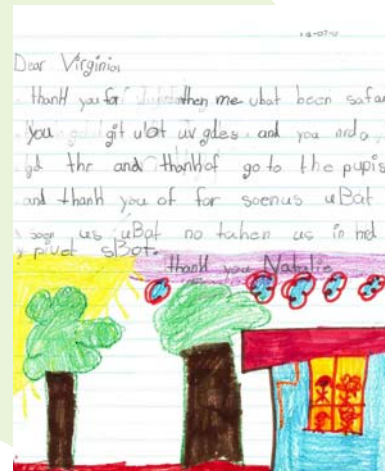 Dear Virginia
thank you for me ubat been safa
you git ulot uv gdes and you
thr and thankof go to the pupis
and thank you of for soenus uBat
us uBat no tahen us in hed
pivet sBot.
thank you Natalie